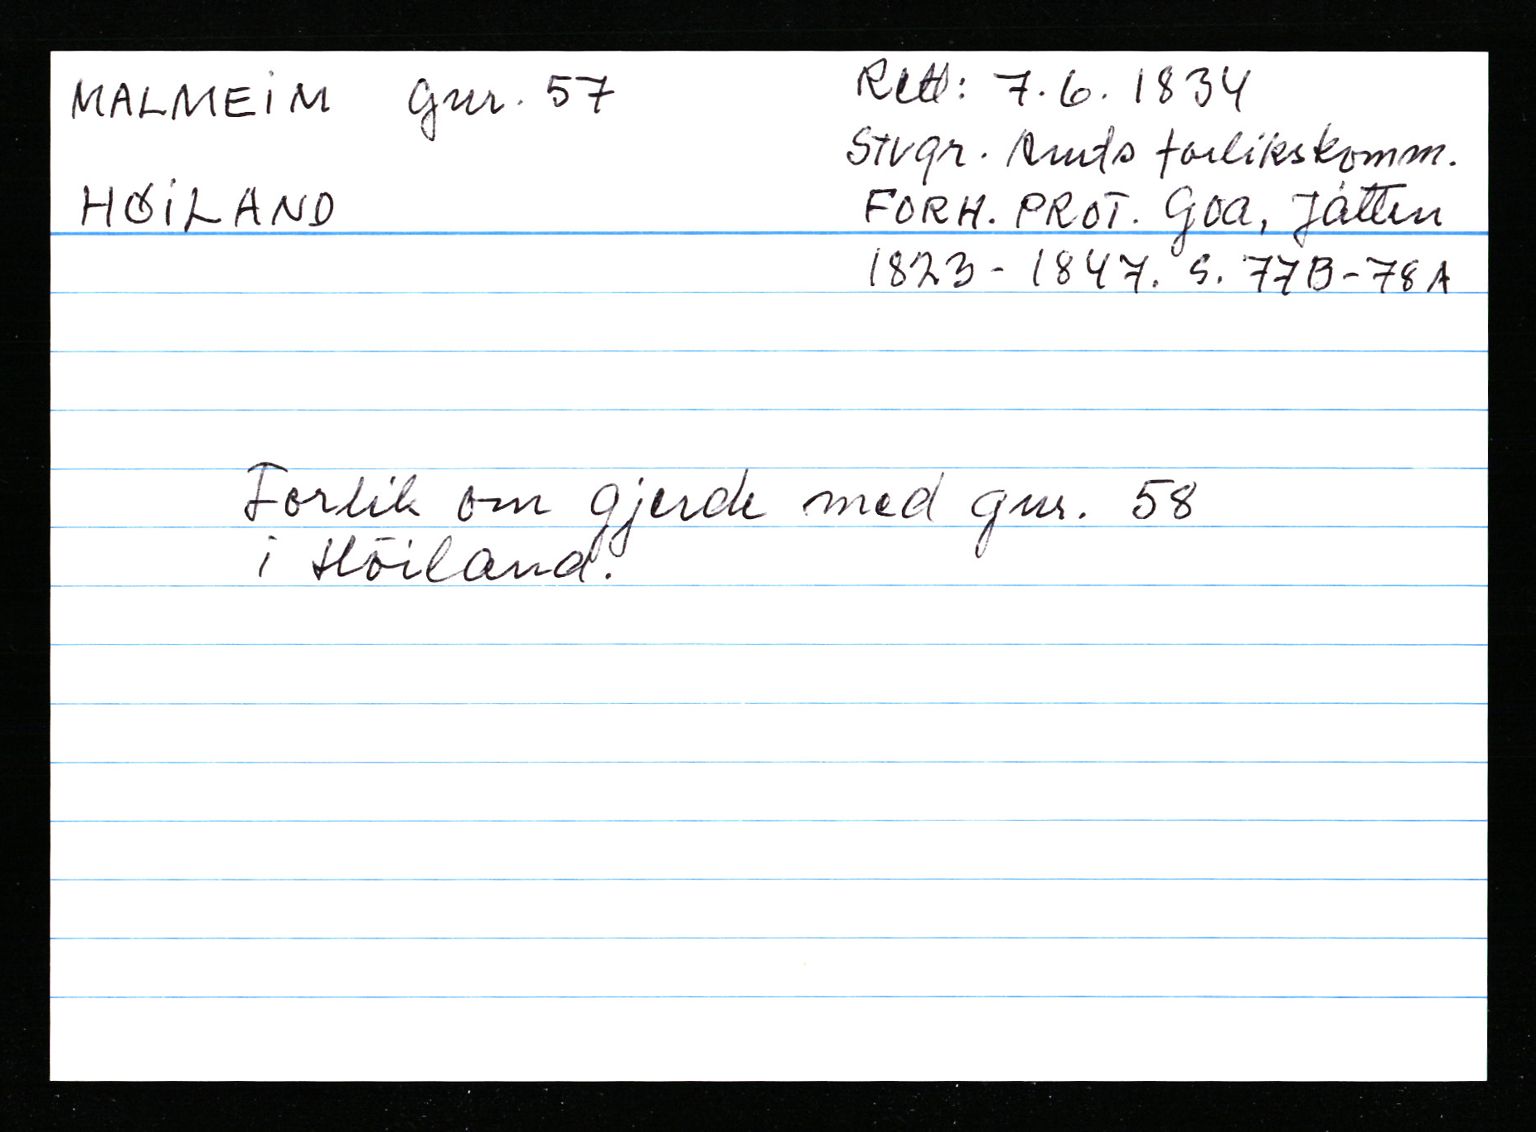 MALMEIM gnr. 57
Rett: 7.6. 1834
Stvgr. Amts forlikskomm.
HØILAND
FORH. PROT. Goa, Jåtten
1823 - 1847. S. 77B-78A
Forlik om gjerde med gnr. 58
i Høiland.